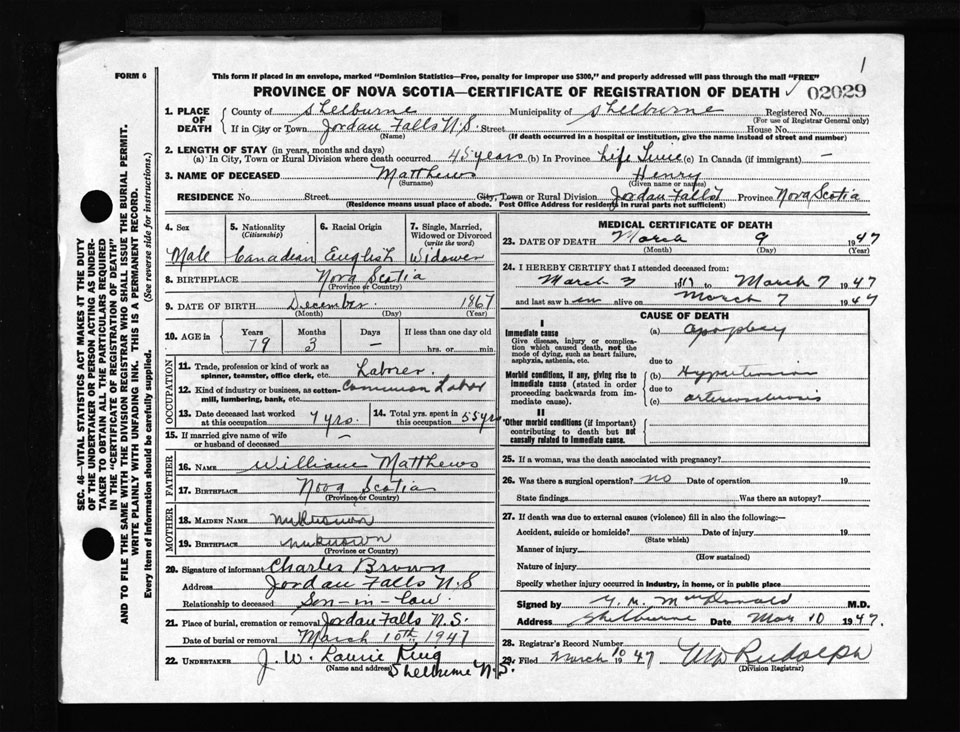 1
FORM 6
This form if placed in an envelope, marked "Dominion Statistics—Free, penalty for improper use $300," and properly addressed will pass through the mail "FREE"
PROVINCE OF NOVA SCOTIA—CERTIFICATE OF REGISTRATION OF DEATH ✓ 02029
1. PLACE OF DEATH
County of Shelburne Municipality of Shelburne Registered No.
(For use of Registrar General only)
If in City or Town Jordan Falls N.S. Street House No.
(Name) (If death occurred in a hospital or institution, give the name instead of street and number)
2. LENGTH OF STAY (in years, months and days)
(a) In City, Town or Rural Division where death occurred 45 years (b) In Province Life Time (c) In Canada (if immigrant) —
3. NAME OF DECEASED Matthews Henry
(Surname) (Given name or names)
RESIDENCE No. Street City, Town or Rural Division Jordan Falls Province Nova Scotia
(Residence means usual place of abode. Post Office Address for residents in rural parts not sufficient)
4. Sex
Male
5. Nationality
(Citizenship)
Canadian
6. Racial Origin
English
7. Single, Married, Widowed or Divorced
(write the word)
Widower
8. BIRTHPLACE Nova Scotia
(Province or Country)
9. DATE OF BIRTH December 1867
(Month) (Day) (Year)
10. AGE in Years Months Days If less than one day old
79 3 — hrs. or min.
OCCUPATION
11. Trade, profession or kind of work as spinner, teamster, office clerk, etc. Labrer
12. Kind of industry or business, as cotton-mill, lumbering, bank, etc. Common Labor
13. Date deceased last worked at this occupation 7 yrs.
14. Total yrs. spent in this occupation 55 yrs
15. If married give name of wife or husband of deceased —
FATHER
16. NAME William Matthews
17. BIRTHPLACE Nova Scotia
(Province or Country)
MOTHER
18. MAIDEN NAME unknown
19. BIRTHPLACE unknown
(Province or Country)
20. Signature of informant Charles Brown
Address Jordan Falls N.S
Relationship to deceased Son-in-law.
21. Place of burial, cremation or removal Jordan Falls N.S.
Date of burial or removal March 10th, 1947
22. UNDERTAKER J. W. Laurie King
(Name and address) Shelburne N.S.
MEDICAL CERTIFICATE OF DEATH
23. DATE OF DEATH March 9 1947
(Month) (Day) (Year)
24. I HEREBY CERTIFY that I attended deceased from:
March 3 1947 to March 7 1947
and last saw him alive on March 7 1947
CAUSE OF DEATH
I
Immediate cause
Give disease, injury or complication which caused death, not the mode of dying, such as heart failure, asphyxia, asthenia, etc.
(a) apoplexy
due to
Morbid conditions, if any, giving rise to immediate cause (stated in order proceeding backwards from immediate cause).
(b) Hypertension
due to
(c) arteriosclerosis
II
Other morbid conditions (if important) contributing to death but not causally related to immediate cause.
25. If a woman, was the death associated with pregnancy?
26. Was there a surgical operation? no Date of operation 19
State findings Was there an autopsy?
27. If death was due to external causes (violence) fill in also the following:—
Accident, suicide or homicide? Date of injury 19
(State which)
Manner of injury
(How sustained)
Nature of injury
Specify whether injury occurred in industry, in home, or in public place
Signed by MacDonald M.D.
Address Shelburne Date Mar 10 1947.
28. Registrar's Record Number
29. Filed March 10 1947 Rudolph
(Division Registrar)
SEC. 46—VITAL STATISTICS ACT MAKES IT THE DUTY
OF THE UNDERTAKER OR PERSON ACTING AS UNDER-
TAKER TO OBTAIN ALL THE PARTICULARS REQUIRED
IN THE "CERTIFICATE OF REGISTRATION OF DEATH"
AND TO FILE THE SAME WITH THE DIVISION REGISTRAR WHO SHALL ISSUE THE BURIAL PERMIT.
WRITE PLAINLY WITH UNFADING INK. THIS IS A PERMANENT RECORD.
Every item of information should be carefully supplied. (See reverse side for instructions.)